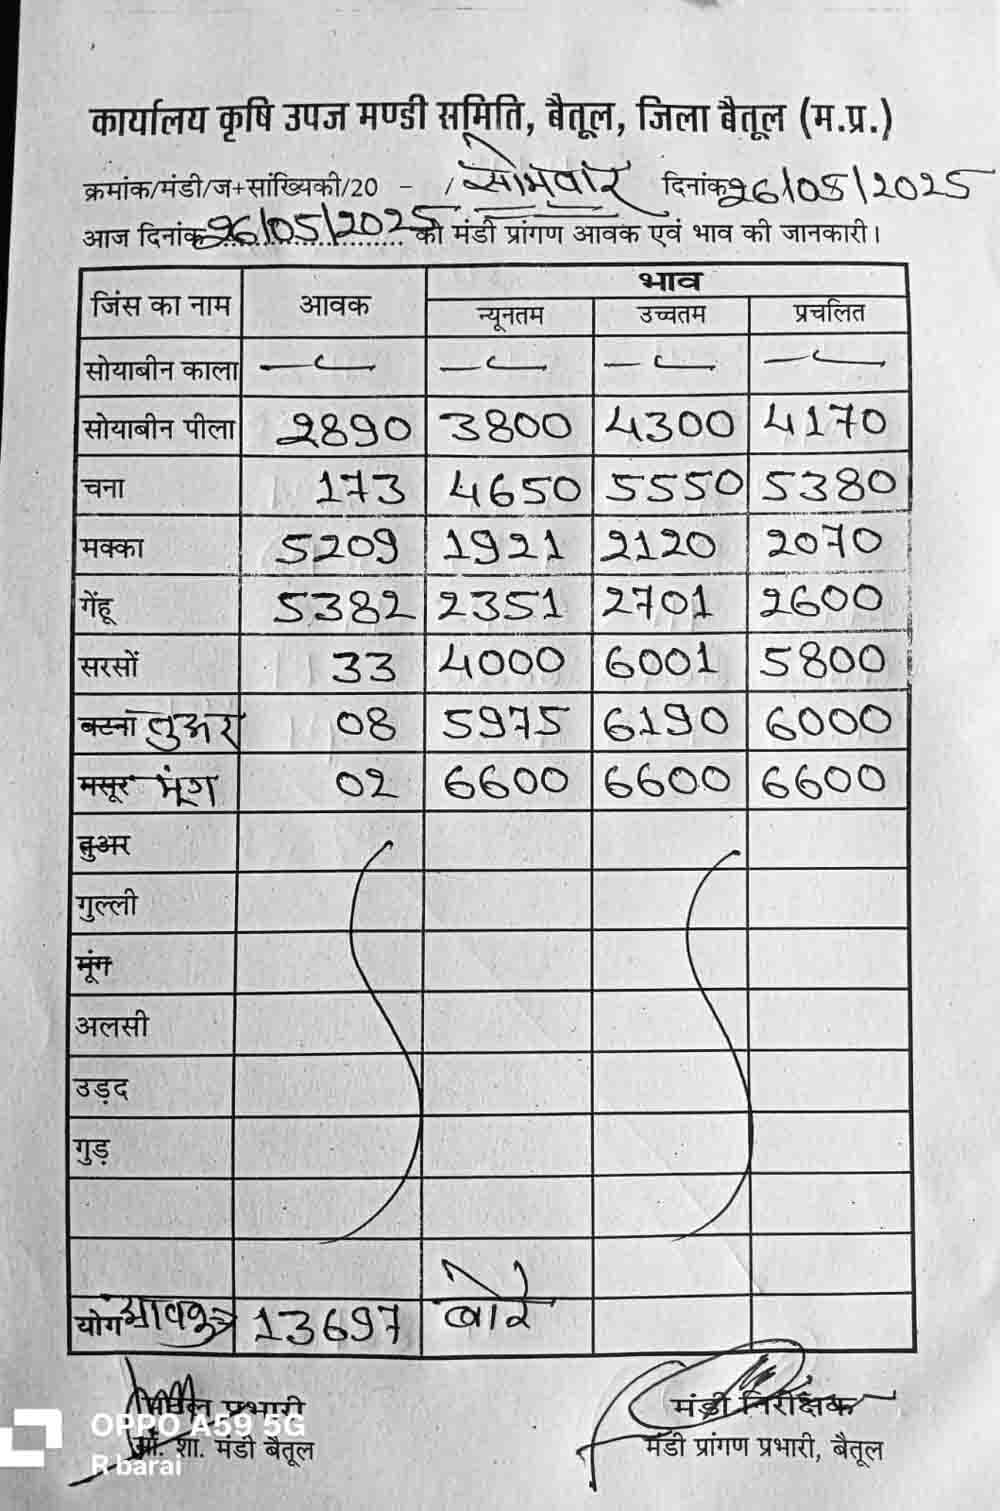 कार्यालय कृषि उपज मण्डी समिति, बैतूल, जिला बैतूल (म.प्र.)
क्रमांक/मंडी/ज+सांख्यिकी/20 - / सोमवार दिनांक 26/05/2025
आज दिनांक 26/05/2025 को मंडी प्रांगण आवक एवं भाव की जानकारी।
जिंस का नाम आवक भाव
न्यूनतम उच्चतम प्रचलित
सोयाबीन काला — — — —
सोयाबीन पीला 2890 3800 4300 4170
चना 173 4650 5550 5380
मक्का 5209 1921 2120 2070
गेंहू 5382 2351 2701 2600
सरसों 33 4000 6001 5800
बटना तुअर 08 5975 6190 6000
मसूर मूंग 02 6600 6600 6600
तुअर
गुल्ली
मूंग
अलसी
उड़द
गुड़
योग आवक 13697 बोरे
प्रभारी मंडी निरीक्षक
शा. मंडी बैतूल मंडी प्रांगण प्रभारी, बैतूल
OPPO A59 5G
R barai